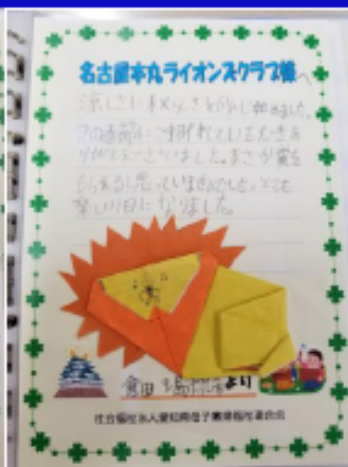 名古屋本丸ライオンズクラブ様へ
涼しい秋らしさをかんじ始めました。
この季節にご招待していただきあ
りがとうございました。まさか賞を
もらえると思っていませんでした。とても
楽しい1日になりました。
より
社会福祉法人愛知県母子寡婦福祉連合会